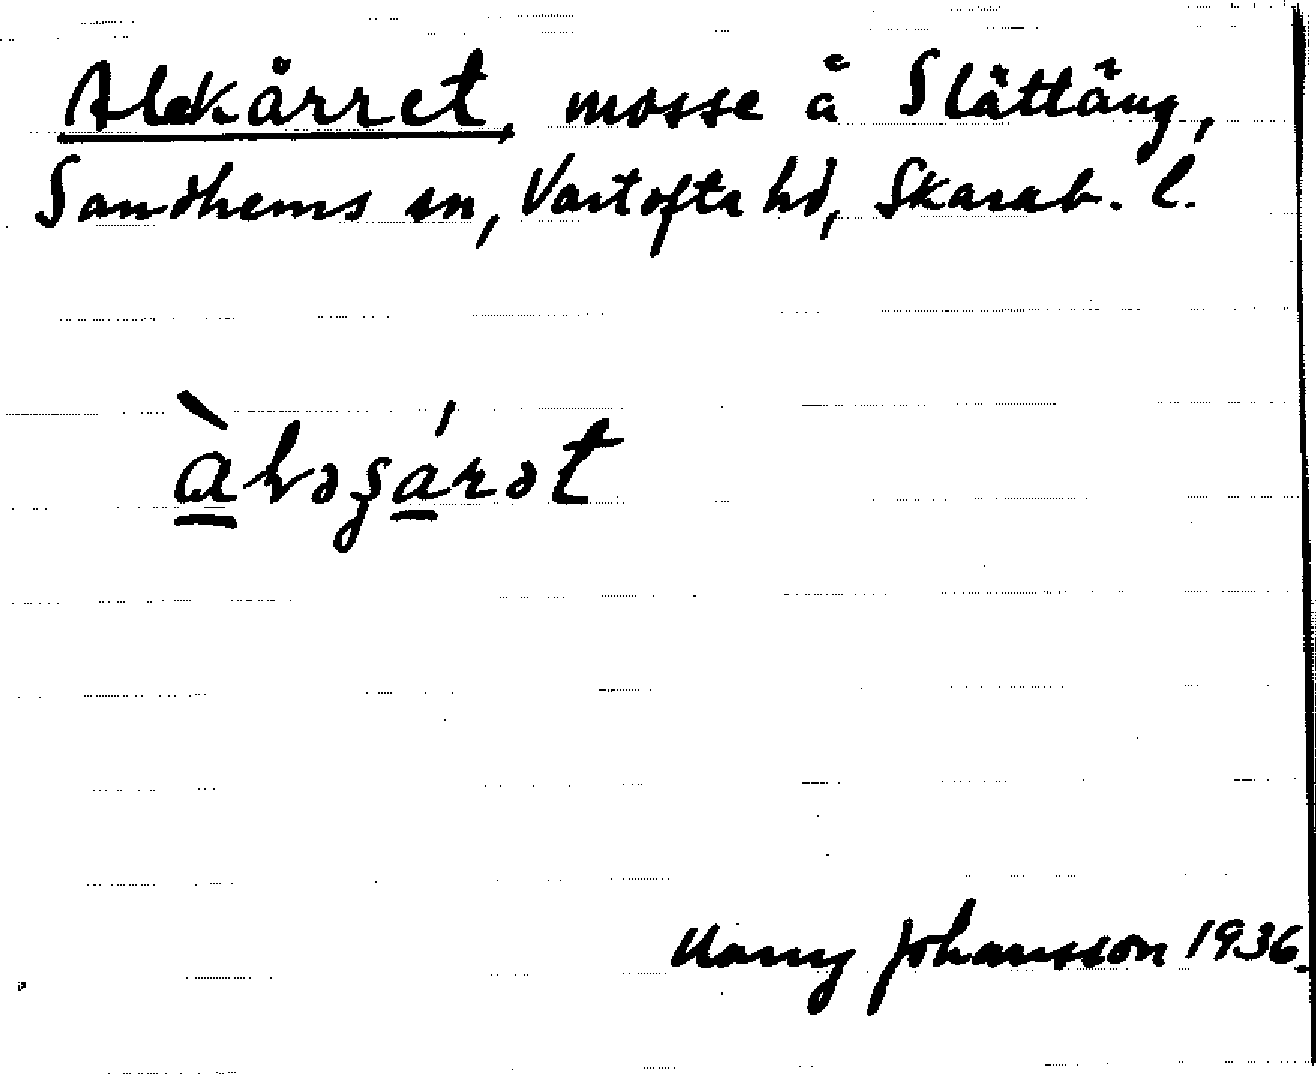 Alekärret, mosse å Slättäng,
Sandhems sn, Vartofta hd, Skarab. l.
Harry Johansson 1936.